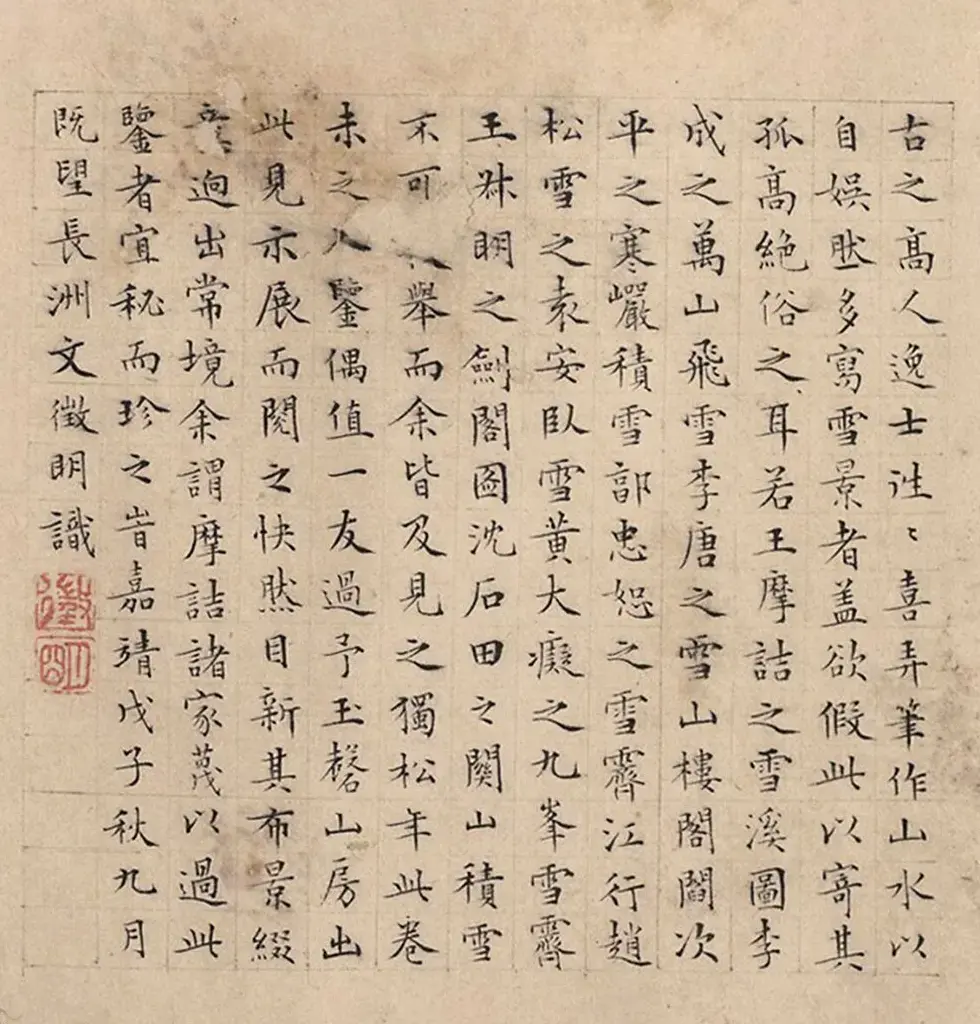 古之高人逸士往〻喜弄筆作山水以
自娛然多寫雪景者盖欲假此以寄其
孤高絶俗之耳若王摩詰之雪溪圖李
成之萬山飛雪李唐之雪山樓閣閻次
平之寒巖積雪郭忠恕之雪霽江行趙
松雪之袁安臥雪黃大癡之九峯雪霽
王叔明之劍閣圖沈石田之関山積雪
不可舉而余皆及見之獨松年此卷
未之入鑒偶值一友過予玉磬山房出
此見示展而閱之快然目新其布景綴
意逈出常境余謂摩詰諸家蔑以過此
鑒者宜秘而珍之旹嘉靖戊子秋九月
既望長洲文徵明識
徵明